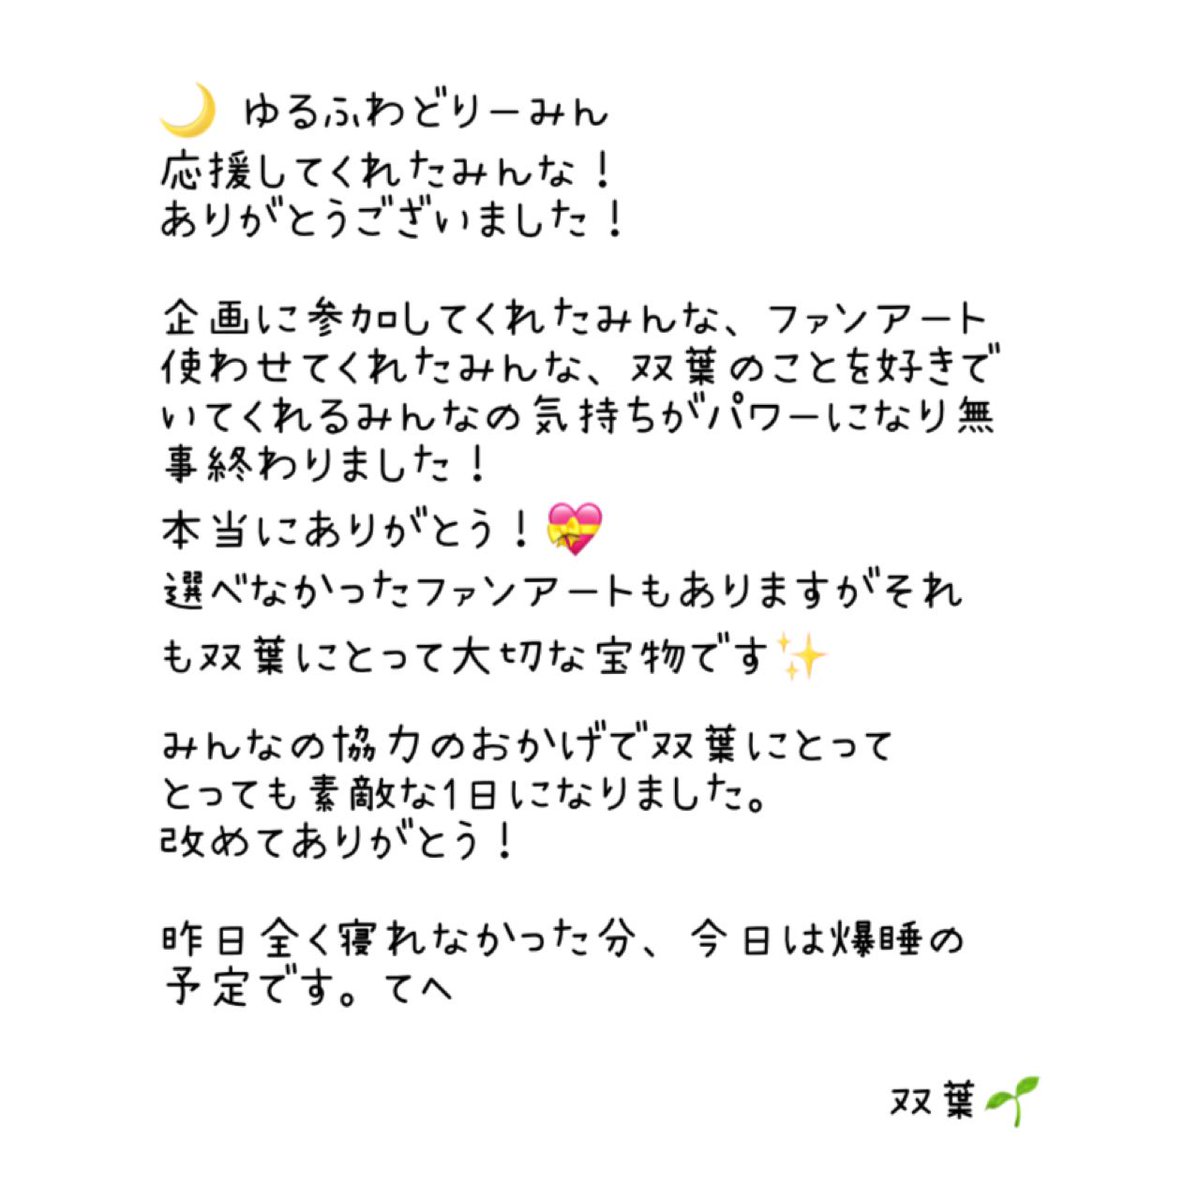 🌙 ゆるふわどりーみん
応援してくれたみんな！
ありがとうございました！
企画に参加してくれたみんな、ファンアート
使わせてくれたみんな、双葉のことを好きで
いてくれるみんなの気持ちがパワーになり無
事終わりました！
本当にありがとう！💝
選べなかったファンアートもありますがそれ
も双葉にとって大切な宝物です✨
みんなの協力のおかげで双葉にとって
とっても素敵な1日になりました。
改めてありがとう！
昨日全く寝れなかった分、今日は爆睡の
予定です。てへ
双葉🌱